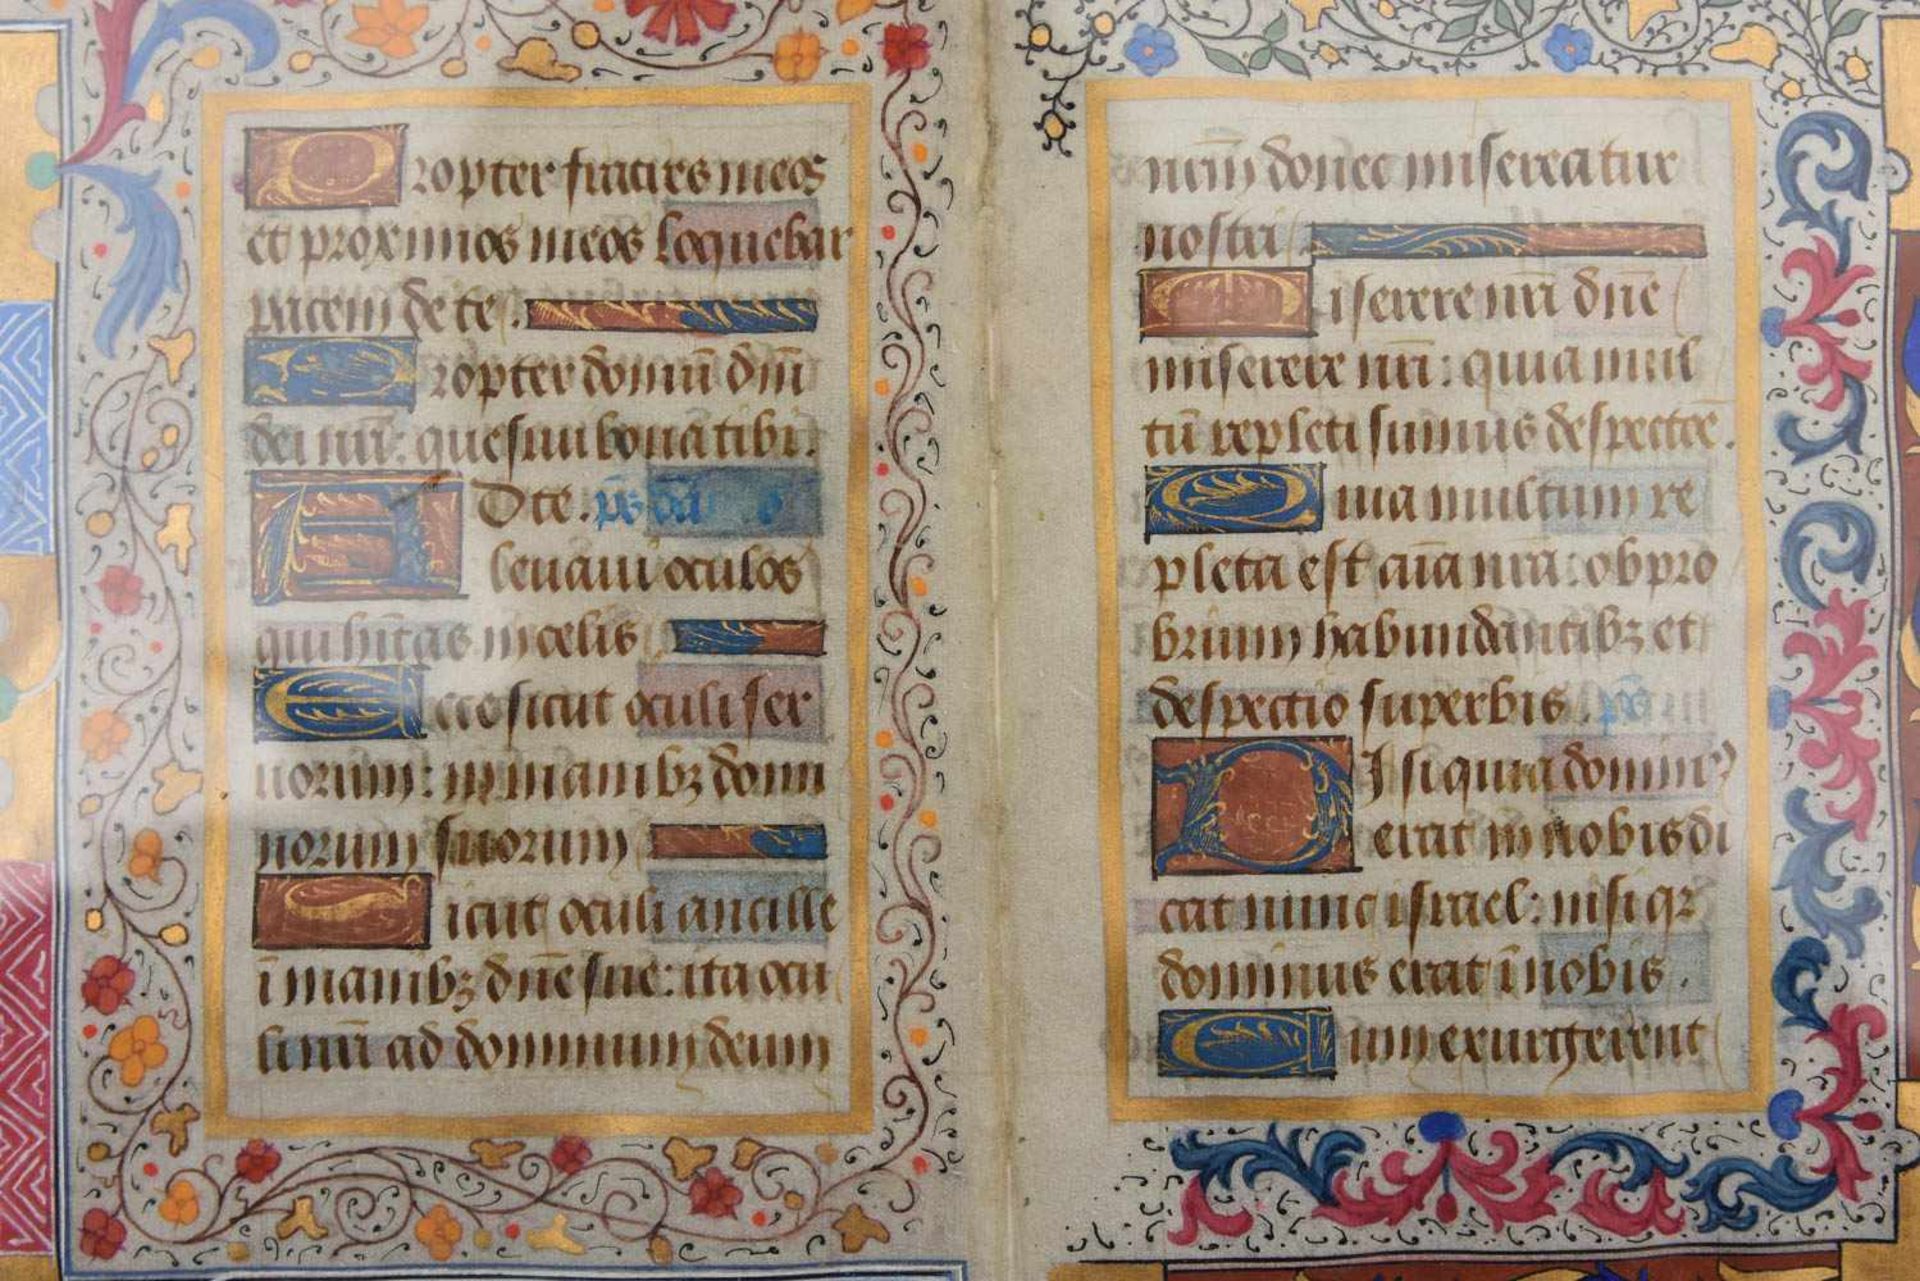 Propter fratres meos
et proximos meos loquebar
pacem de te.
Propter domū dñi
dei nr̄i: quesiui bona tibi.
Ad te. p̄s dā
leuaui oculos
qui hītas in celis
Ecce sicut oculi ser
uorum: in manibꝫ domi
norum suorum
Sicut oculi ancille
ī manibꝫ dñe sue: ita ocu
li nr̄i ad dominum deum
nr̄m donec misereatur
nostri
Miserere nr̄i dñe
miserere nr̄i: quia mul
tū repleti sumus despectōe.
Quia multum re
pleta est aīa nr̄a: obpro
brium habundantibꝫ et
despectio superbis. p̄s
Nisi quia dominꝰ
erat in nobis di
cat nunc israel: nisi qꝛ
dominus erat ī nobis.
Cum exurgerent